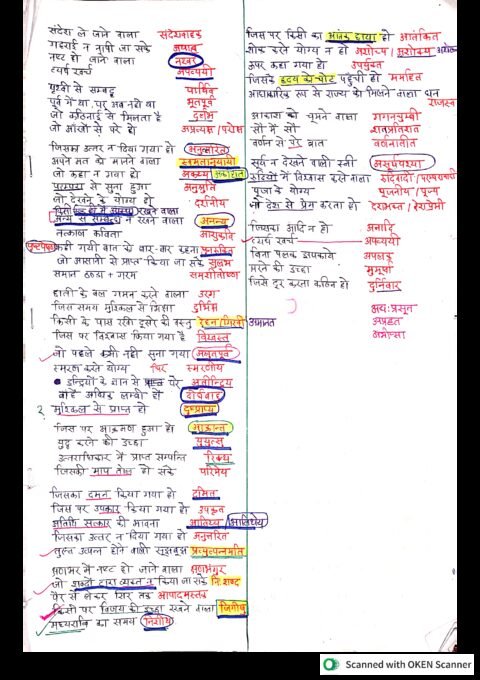 संदेश ले जाने वाला संदेशवाहक
गहराई न नापी जा सके अथाह
नष्ट हो जाने वाला नश्वर
व्यर्थ खर्च अपव्ययी
पृथ्वी से सम्बद्ध पार्थिव
पूर्व में था, पर अब नही था भूतपूर्व
जो कठिनाई से मिलता है दुर्लभ
जो आँखों से परे हो अप्रत्यक्ष / परोक्ष
जिसका उत्तर न दिया गया हो अनुत्तरित
अपने मत को मानने वाला स्वमतानुयायी
जो कहा न गया हो अकथ्य
परम्परा से सुना हुआ अनुश्रुति
जो देखने के योग्य हो दर्शनीय
अन्य से सम्बन्ध न रखने वाला अनन्य
तत्काल कविता आशुकवि
कही गयी बात को बार-बार कहना पुनरुक्ति
जो आसानी से प्राप्त किया जा सके सुलभ
समान ठण्डा + गरम समशीतोष्ण
छाती के बल गमन करने वाला उरग
जिस समय मुश्किल से भिक्षा दुर्भिक्ष
किसी के पास रखी दूसरे की वस्तु रेहन / गिरवी अमानत
जिस पर विश्वास किया गया है विश्वस्त
जो पहले कभी नहीं सुना गया अश्रुतपूर्व
स्मरण करने योग्य स्मरणीय
इन्द्रियों के ज्ञान से परे अतीन्द्रिय
बाहें अधिक लम्बी हो दीर्घबाहु
2 मुश्किल से प्राप्त हो दुष्प्राप्य
जिस पर आक्रमण हुआ हो आक्रान्त
युद्ध करने की इच्छा युयुत्सु
उत्तराधिकार में प्राप्त सम्पत्ति रिक्थ
जिसकी माप तोल हो सके परिमेय
जिसका दमन किया गया हो दमित
जिस पर उपकार किया गया हो उपकृत
अतिथि सत्कार की भावना आतिथ्य / आतिथेय
जिसका उत्तर न दिया गया हो अनुत्तरित
तुरन्त उत्पन्न होने वाली सूझबूझ प्रत्युत्पन्नमति
क्षणभर में नष्ट हो जाने वाला क्षणभंगुर
जो शब्दों द्वारा व्यक्त न किया जा सके निःशब्द
पैर से लेकर सिर तक आपादमस्तक
किसी पर विजय की इच्छा रखने वाला जिगीषु
मध्यरात्रि का समय निशीथ
जिस पर किसी का आतंक छाया हो आतंकित
शोक करने योग्य न हो अशोच्य / अशोक्य
ऊपर कहा गया हो उपर्युक्त
जिसके हृदय को चोट पहुँची हो मर्माहत
आधिकारिक रूप से राज्य को मिलने वाला धन राजस्व
आकाश को चूमने वाला गगनचुम्बी
सौ में सौ शतप्रतिशत
वर्णन से परे बात वर्णनातीत
सूर्य न देखने वाली स्त्री असूर्यपश्या
रूढ़ियों में विश्वास करने वाला रूढ़िवादी / परम्परावादी
पूजा के योग्य पूजनीय / पूज्य
जो देश से प्रेम करता हो देशभक्त / देशप्रेमी
जिसका आदि न हो अनादि
व्यर्थ खर्च अपव्ययी
बिना पलक झपकाये अपलक
मरने की इच्छा मुमूर्षा
जिसे दूर करना कठिन हो दुर्निवार
अपहृत
Scanned with OKEN Scanner